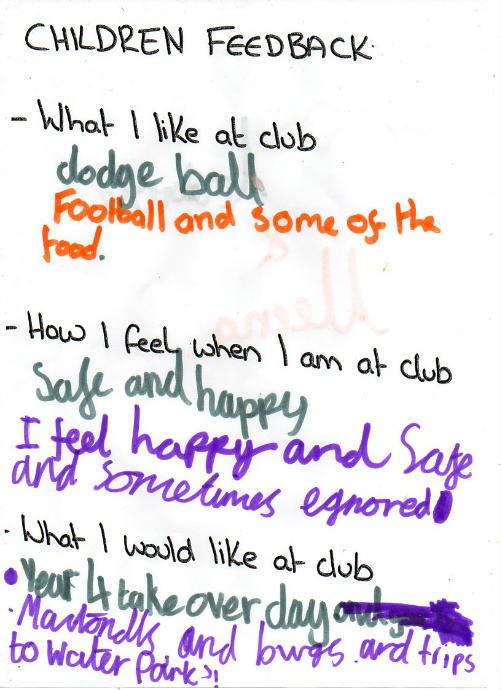 CHILDREN FEEDBACK.
- What I like at club
dodge ball
Football and some of the
food.
- How I feel when I am at club
Safe and happy
I feel happy and Safe
and sometimes egnored
- What I would like at club
• Year 4 take over day
and burgs and trips
to Water Park's!